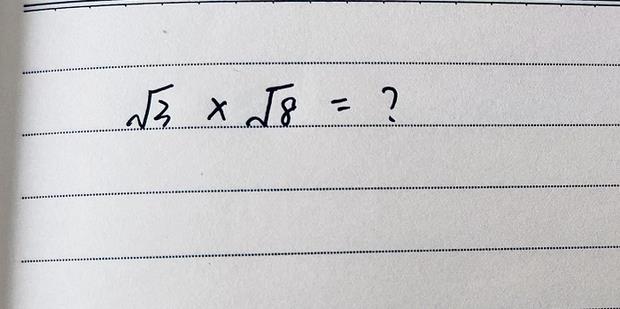 √3 × √8 = ?